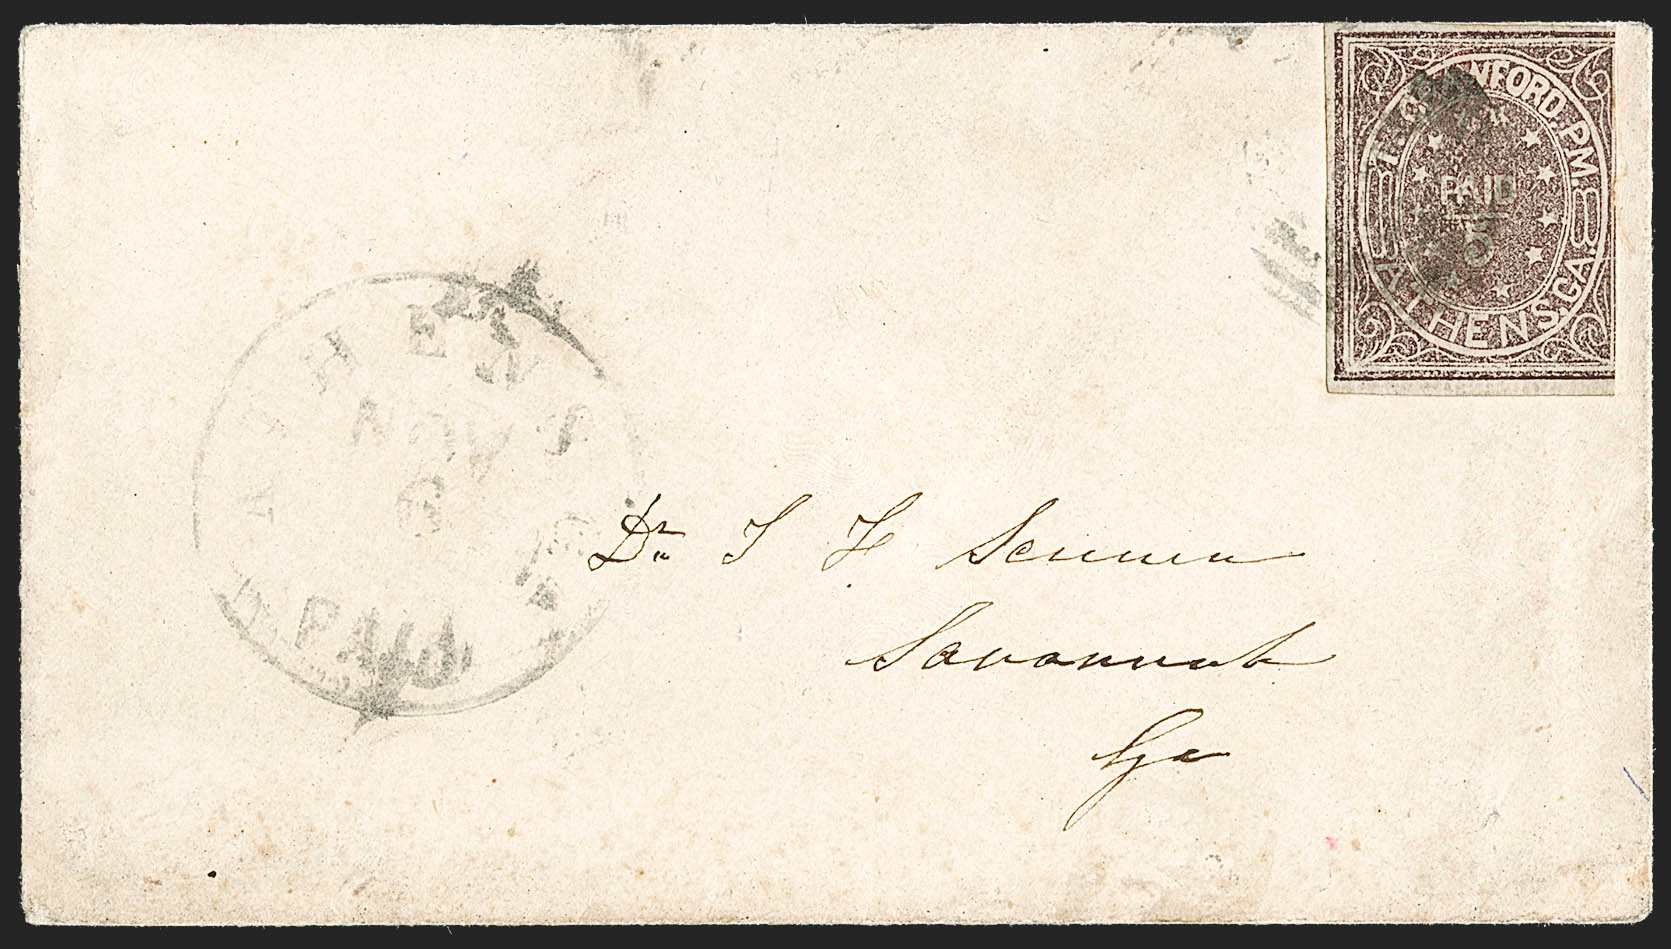 T. CRAWFORD. P.M.
PAID
5
ATHENS, GA
ATHENS
NOV
PAID
Dr
Savannah
Ga